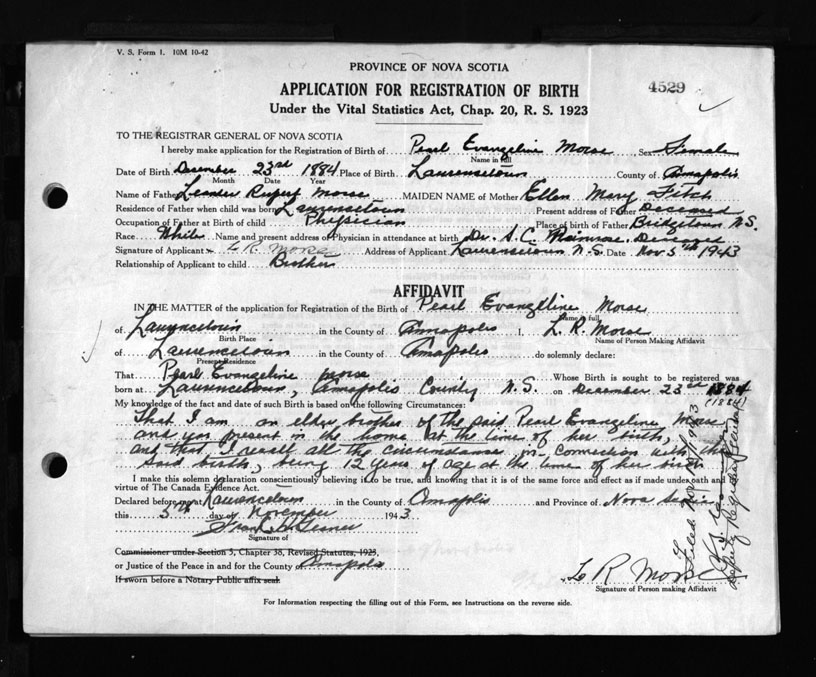 V. S. Form 1. 10M 10-42
PROVINCE OF NOVA SCOTIA
APPLICATION FOR REGISTRATION OF BIRTH
4529
Under the Vital Statistics Act, Chap. 20, R. S. 1923
TO THE REGISTRAR GENERAL OF NOVA SCOTIA
I hereby make application for the Registration of Birth of Pearl Evangeline Morse Sex Female
Name in full
Date of Birth December 23rd 1884 Place of Birth Lawrencetown County of Annapolis
Month Date Year
Name of Father Leander Rupert Morse MAIDEN NAME of Mother Ellen Mary Fitch
Residence of Father when child was born Lawrencetown Present address of Father Deceased
Occupation of Father at Birth of child Physician Place of birth of Father Bridgetown N.S.
Race White Name and present address of Physician in attendance at birth Dr. S. C. Primrose Deceased
Signature of Applicant L R Morse Address of Applicant Lawrencetown N.S. Date Nov 5th 1943
Relationship of Applicant to child Brother
AFFIDAVIT
IN THE MATTER of the application for Registration of the Birth of Pearl Evangeline Morse
Name in full
of Lawrencetown in the County of Annapolis I. L. R. Morse
Birth Place Name of Person Making Affidavit
of Lawrencetown in the County of Annapolis do solemnly declare:
Present Residence
That Pearl Evangeline Morse Whose Birth is sought to be registered was
born at Lawrencetown, Annapolis County N.S. on December 23rd 1884
(1884)
My knowledge of the fact and date of such Birth is based on the following Circumstances:
That I am an elder brother of the said Pearl Evangeline Morse
and was present in the home at the time of her birth,
and that I recall all the circumstances in connection with the
said birth, being 12 years of age at the time of her birth
I make this solemn declaration conscientiously believing it to be true, and knowing that it is of the same force and effect as if made under oath and by
virtue of The Canada Evidence Act.
Declared before me at Lawrencetown in the County of Annapolis and Province of Nova Scotia
this 5th day of November 1943
Signature of
Commissioner under Section 5, Chapter 38, Revised Statutes, 1923,
or Justice of the Peace in and for the County of Annapolis
If sworn before a Notary Public affix seal.
L R Morse
Signature of Person making Affidavit
Deputy Registrar General
For Information respecting the filling out of this Form, see Instructions on the reverse side.